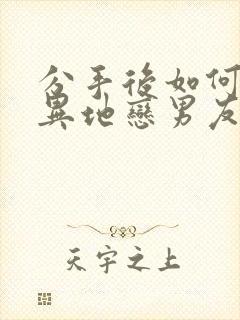 分手後如何
異地戀男友
天宇之上